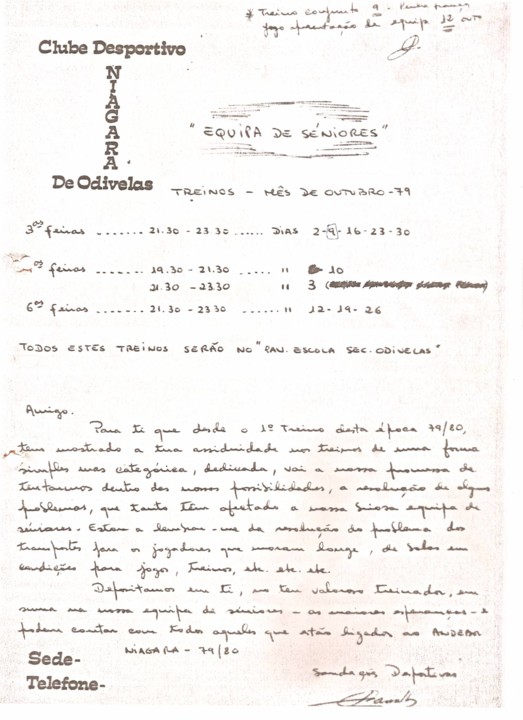 * Treino conjunto 9 -
jogo apresentação da equipa 12 OUT
Clube Desportivo
NIAGARA
De Odivelas
"EQUIPA DE SÉNIORES"
TREINOS - MÊS DE OUTUBRO-79
3as feiras ....... 21.30 - 23.30 ...... DIAS 2-9-16-23-30
as feiras ...... 19.30 - 21.30 ..... " 10
21.30 - 23.30 " 3
6as feiras ...... 21.30 - 23.30 ...... " 12-19-26
TODOS ESTES TREINOS SERÃO NO "PAV. ESCOLA SEC. ODIVELAS"
Amigo.
Para ti que desde o 1º Treino desta época 79/80,
tens mostrado a tua assiduidade nos treinos de uma forma
simples mas categórica, dedicada, vai a nossa promessa de
tentarmos dentro das nossas possibilidades, a resolução de alguns
problemas, que tanto têm afectado a nossa briosa equipa de
séniores. Estou a lembrar-me da resolução do problema dos
transportes para os jogadores que moram longe, de bolas em
condições para jogos, treinos, etc. etc. etc.
Depositamos em ti, no teu valoroso treinador, em
suma na nossa equipa de séniores - as maiores esperanças - e
podem contar com todos aqueles que estão ligados ao ANDEBOL
NIAGARA - 79/80
Sede-
Saudações Desportivas
Telefone-